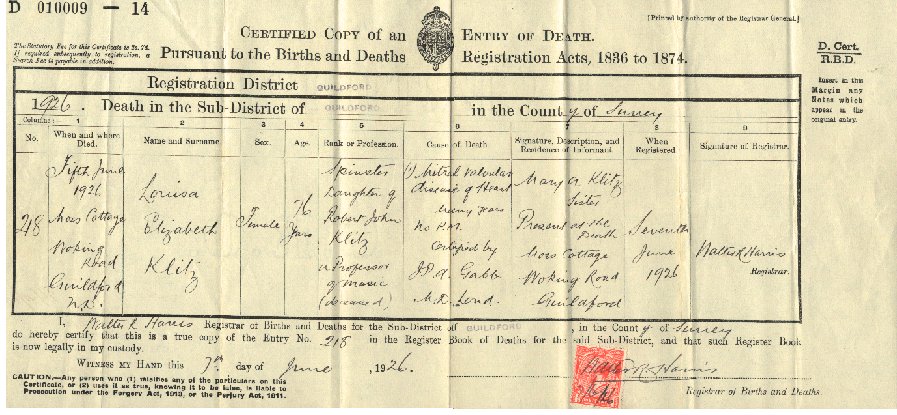 D 010009 — 14
[Printed by authority of the Registrar General.]
CERTIFIED COPY OF AN ENTRY OF DEATH.
Pursuant to the Births and Deaths Registration Acts, 1836 to 1874.
The Statutory Fee for this Certificate is 2s. 7d.
If required subsequently to registration, a
Search Fee is payable in addition.
D. Cert.
R.B.D.
Insert in this
Margin any
Notes which
appear in the
original entry.
Registration District GUILDFORD
1926. Death in the Sub-District of GUILDFORD in the County of Surrey
Columns: 1 2 3 4 5 6 7 8 9
No. When and where Died. Name and Surname Sex. Age. Rank or Profession. Cause of Death Signature, Description, and Residence of Informant. When Registered Signature of Registrar.
248
Fifth June
1926
Cottage
Woking
Road
Guildford
Louisa
Elizabeth
Klitz
Female
76
Years
Spinster
Daughter of
Robert John
Klitz
a Professor
of Music
(deceased)
(1) Mitral Valvular
disease of Heart
many years
No P.M.
Certified by
Gabb
Mary A Klitz
Sister
Present at the
Death
Cottage
Woking Road
Guildford
Seventh
June
1926
Walter R Harris
Registrar.
I, Walter R Harris Registrar of Births and Deaths for the Sub-District of GUILDFORD, in the County of Surrey
do hereby certify that this is a true copy of the Entry No. 248 in the Register Book of Deaths for the said Sub-District, and that such Register Book
is now legally in my custody.
WITNESS MY HAND this 7th day of June, 1926.
CAUTION.—Any person who (1) falsifies any of the particulars on this
Certificate, or (2) uses it as true, knowing it to be false, is liable to
Prosecution under the Forgery Act, 1913, or the Perjury Act, 1911.
Walter R Harris
Registrar of Births and Deaths.